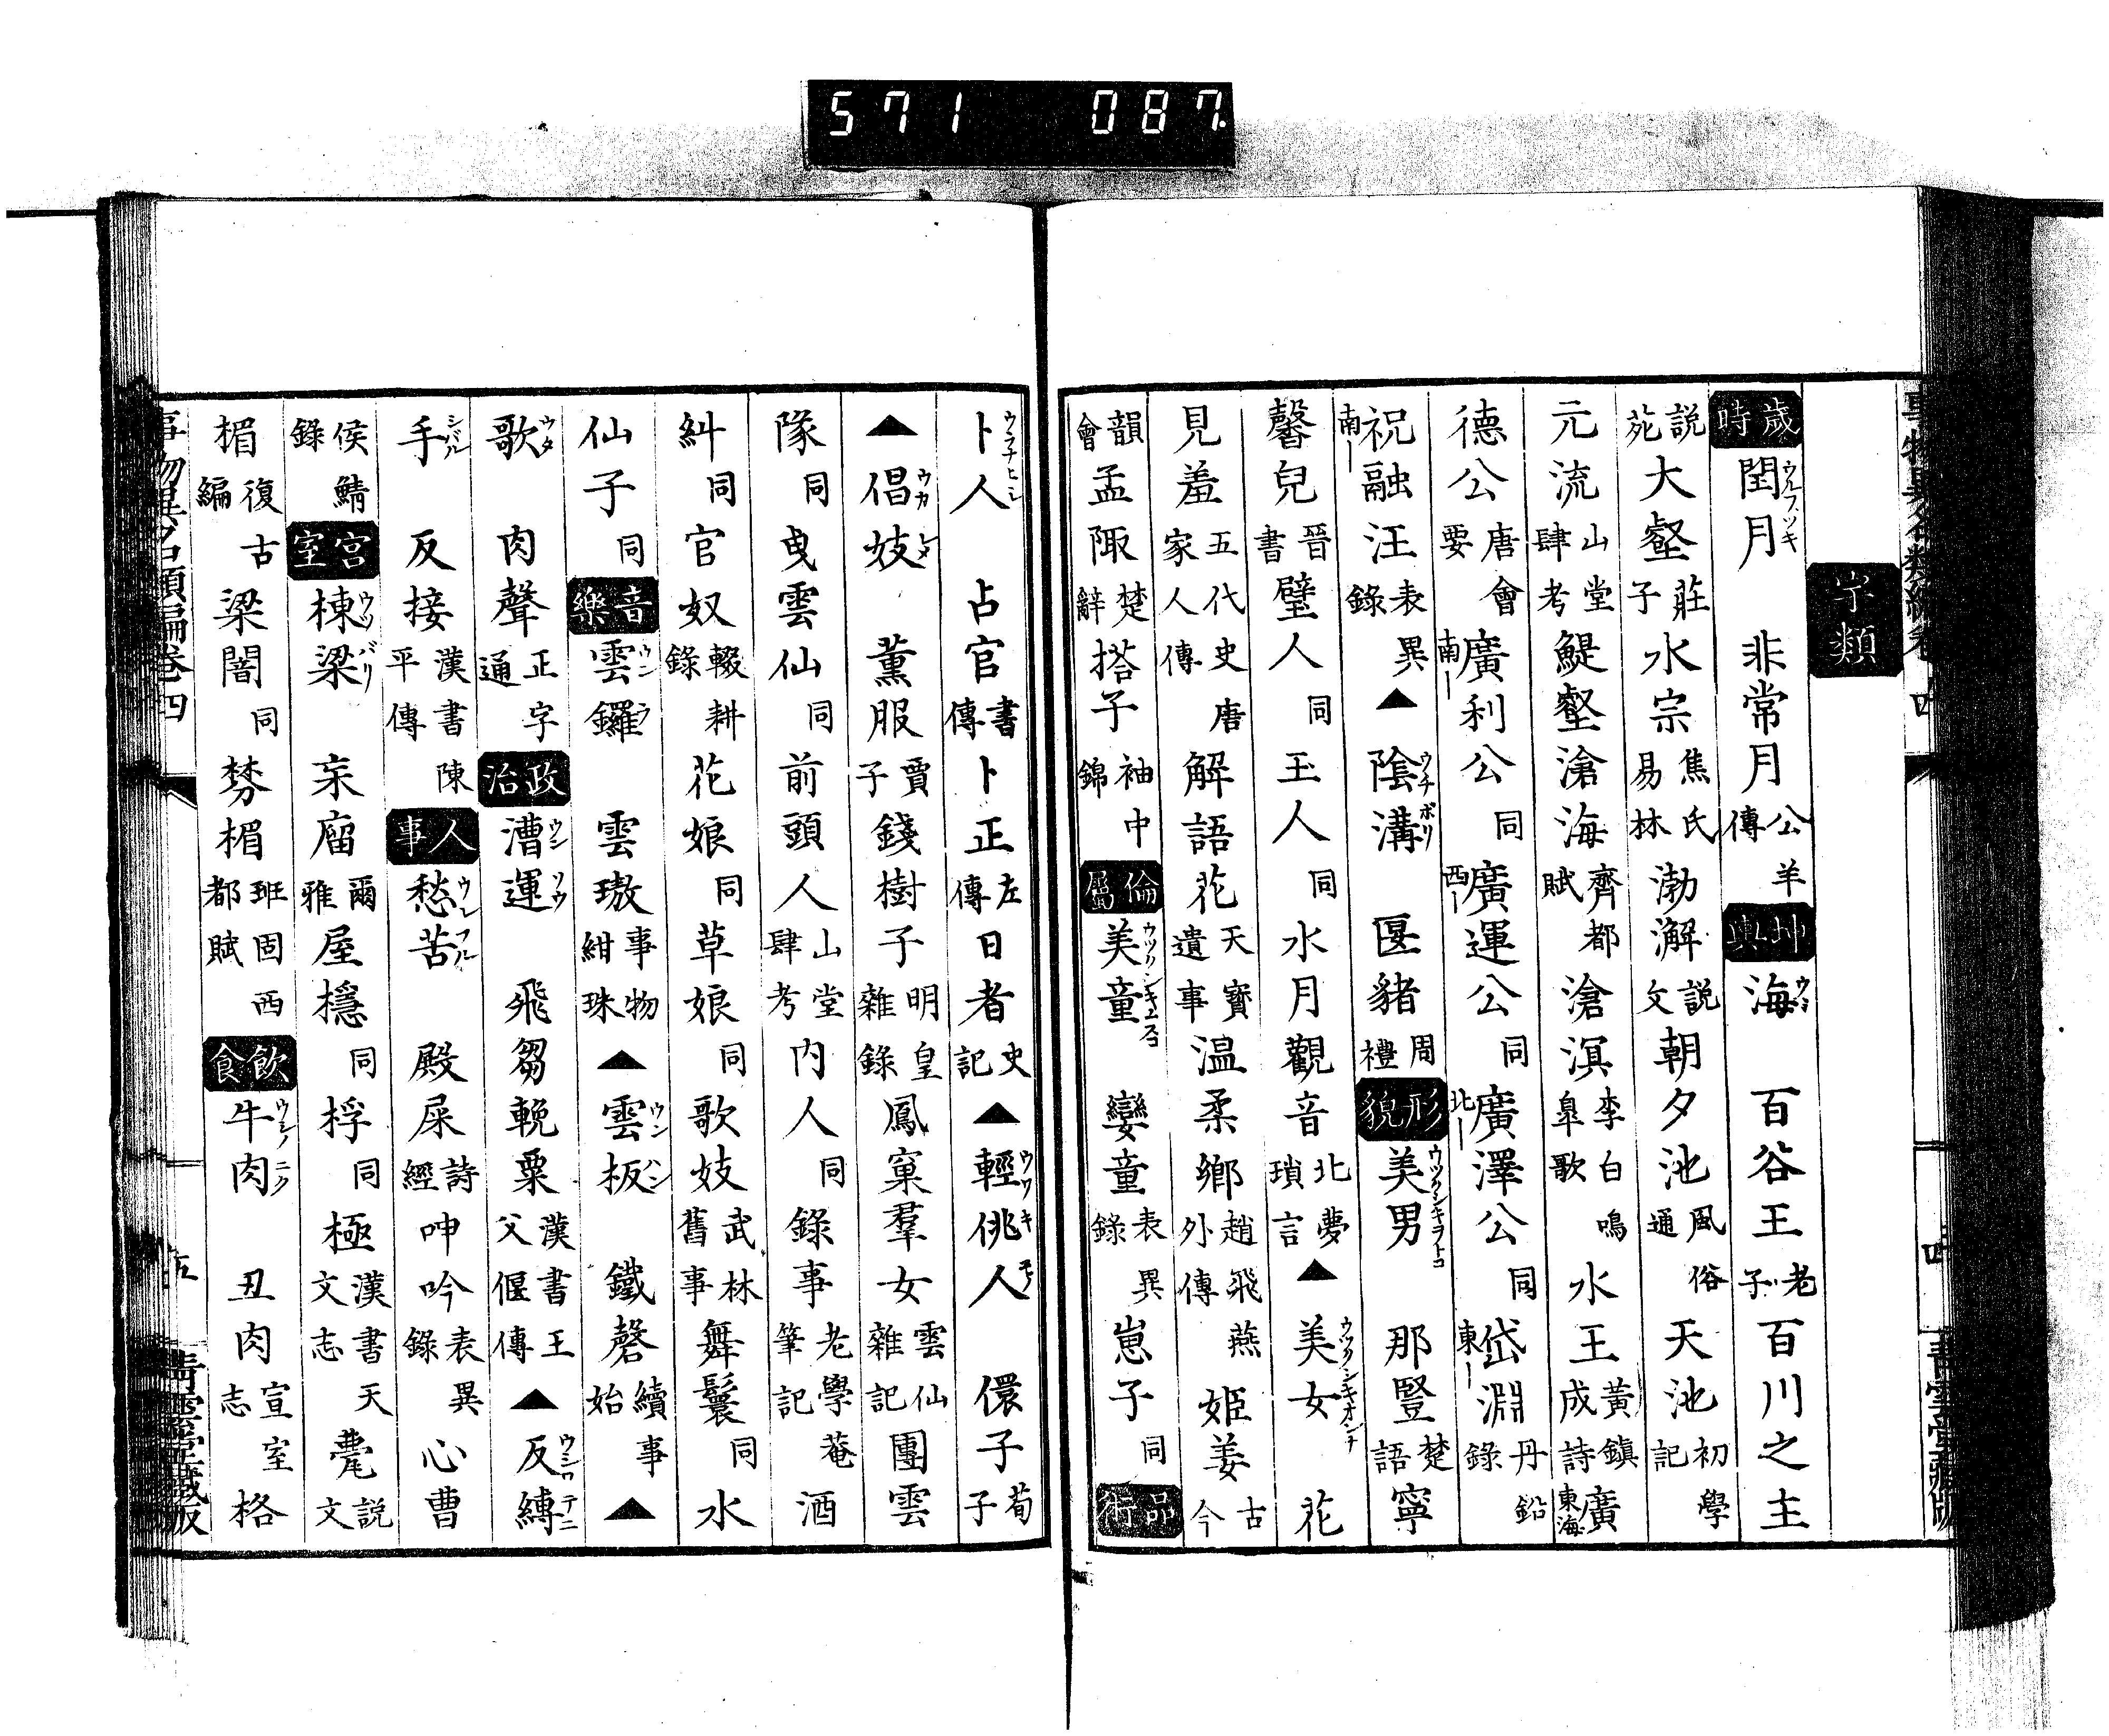 571 087
宇類
歳時 閏月 ウルフツキ 非常月 公羊傳 坤輿 海 ウミ 百谷王 老子 百川之主
説苑 大壑 莊子 水宗 焦氏易林 渤澥 説文 朝夕池 風俗通 天池 初學記
元流 山堂肆考 鯷壑 滄海 齊都賦 滄溟 李白鳴皐歌 水王 黄鎮成詩 東海 廣
德公 唐會要 南― 廣利公 同 西― 廣運公 同 北― 廣澤公 同 東― 岱淵 丹鉛錄
南― 祝融 汪 表異錄 ▲ 陰溝 ウチボリ 匽豬 周禮 形貌 美男 ウツクシキヲトコ 那豎 楚語 寧
馨兒 晉書 璧人 同 玉人 同 水月觀音 北夢瑣言 ▲ 美女 ウツクシキオンナ 花
見羞 五代史唐家人傳 解語花 天寶遺事 溫柔鄉 趙飛燕外傳 姬姜 古今
韻會 孟陬 楚辭 搭子 袖中錦 倫屬 美童 孌童 表異錄 崽子 同 品術
卜人 占官 書傳 卜正 左傳 日者 史記 ▲ 輕佻人 ウワキモノ 儇子 荀子
▲ 倡妓 ウカレメ 薫服 賈子 錢樹子 明皇雜錄 鳳窠羣女 雲仙雜記 團雲
隊 同 曳雲仙 同 前頭人 山堂肆考 内人 同 錄事 老學菴筆記 酒
糾 同 官奴 輟耕錄 花娘 同 草娘 同 歌妓 武林舊事 舞鬟 同 水
仙子 同 音樂 雲鑼 ウンラ 雲璈 事物紺珠 ▲ 雲板 ウンバン 鐵磬 續事始 ▲
歌 ウタ 肉聲 正字通 政治 漕運 ウンソウ 飛芻輓粟 漢書王父偃傳 ▲ 反縛 ウシロテニ
手 シバル 反接 漢書陳平傳 人事 愁苦 ウレフル 殿屎 詩經 呻吟 表異錄 心曹
侯鯖錄 宮室 棟梁 ウツバリ 宋廇 爾雅 屋檼 同 桴 同 極 漢書天文志 甍 説文
楣 復古編 梁闇 同 棼楣 班固西都賦 飲食 牛肉 ウシノニク 丑肉 宣室志 格
事物異名類編卷四 五 青雲堂藏版